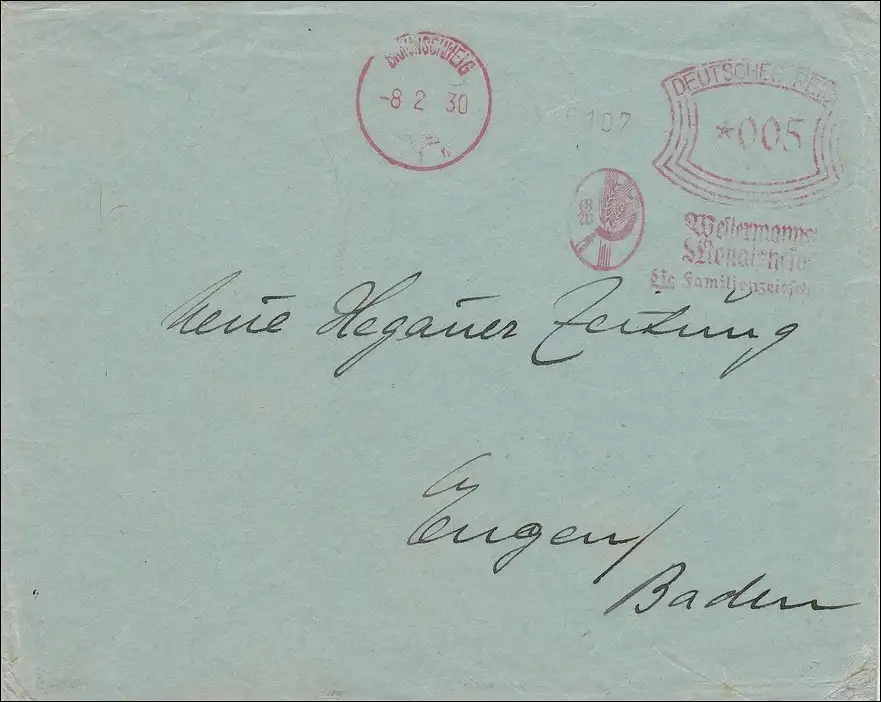 BRAUNSCHWEIG
-8 2 30
DEUTSCHES REICH
*005
107
GW
Westermanns
Monatshefte
die Familienzeitsch
Neue Hegauer Zeitung
Engen/
Baden